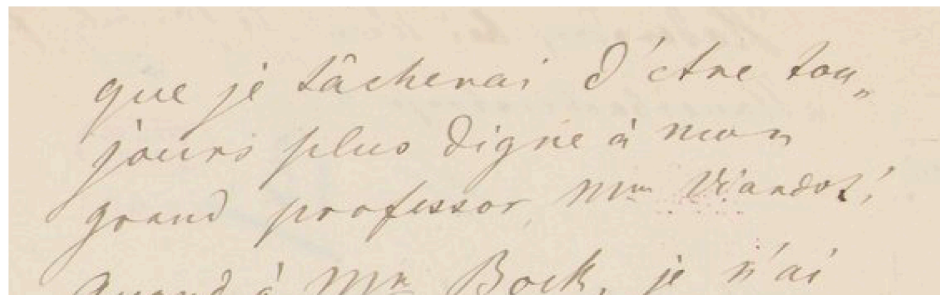 que je tâcherai d'etre tou„
jours plus digne à mon
grand professor, Mm Viardot!
Quand à Mr Bock, je n'ai